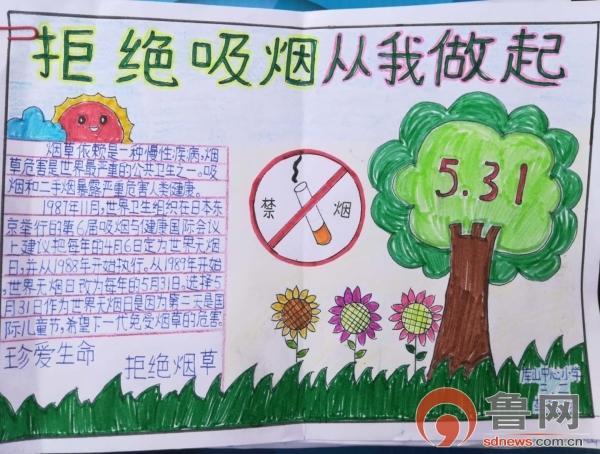 拒绝吸烟从我做起
烟草依赖是一种慢性疾病,烟
草危害是世界最严重的公共卫生之一。吸
烟和二手烟暴露严重危害人类健康。
1987年11月,世界卫生组织在日本东
京举行的第6届吸烟与健康国际会议
上建议把每年的4月6日定为世界无烟
日,并从1988年开始执行。从1989年开始
,世界无烟日改为每年的5月31日,选择5
月31日作为世界无烟日是因为第二天是国
际儿童节,希望下一代免受烟草的危害。
珍爱生命
拒绝烟草
禁 烟
5.31
库山中心小学
三、二
鲁网
sdnews.com.cn